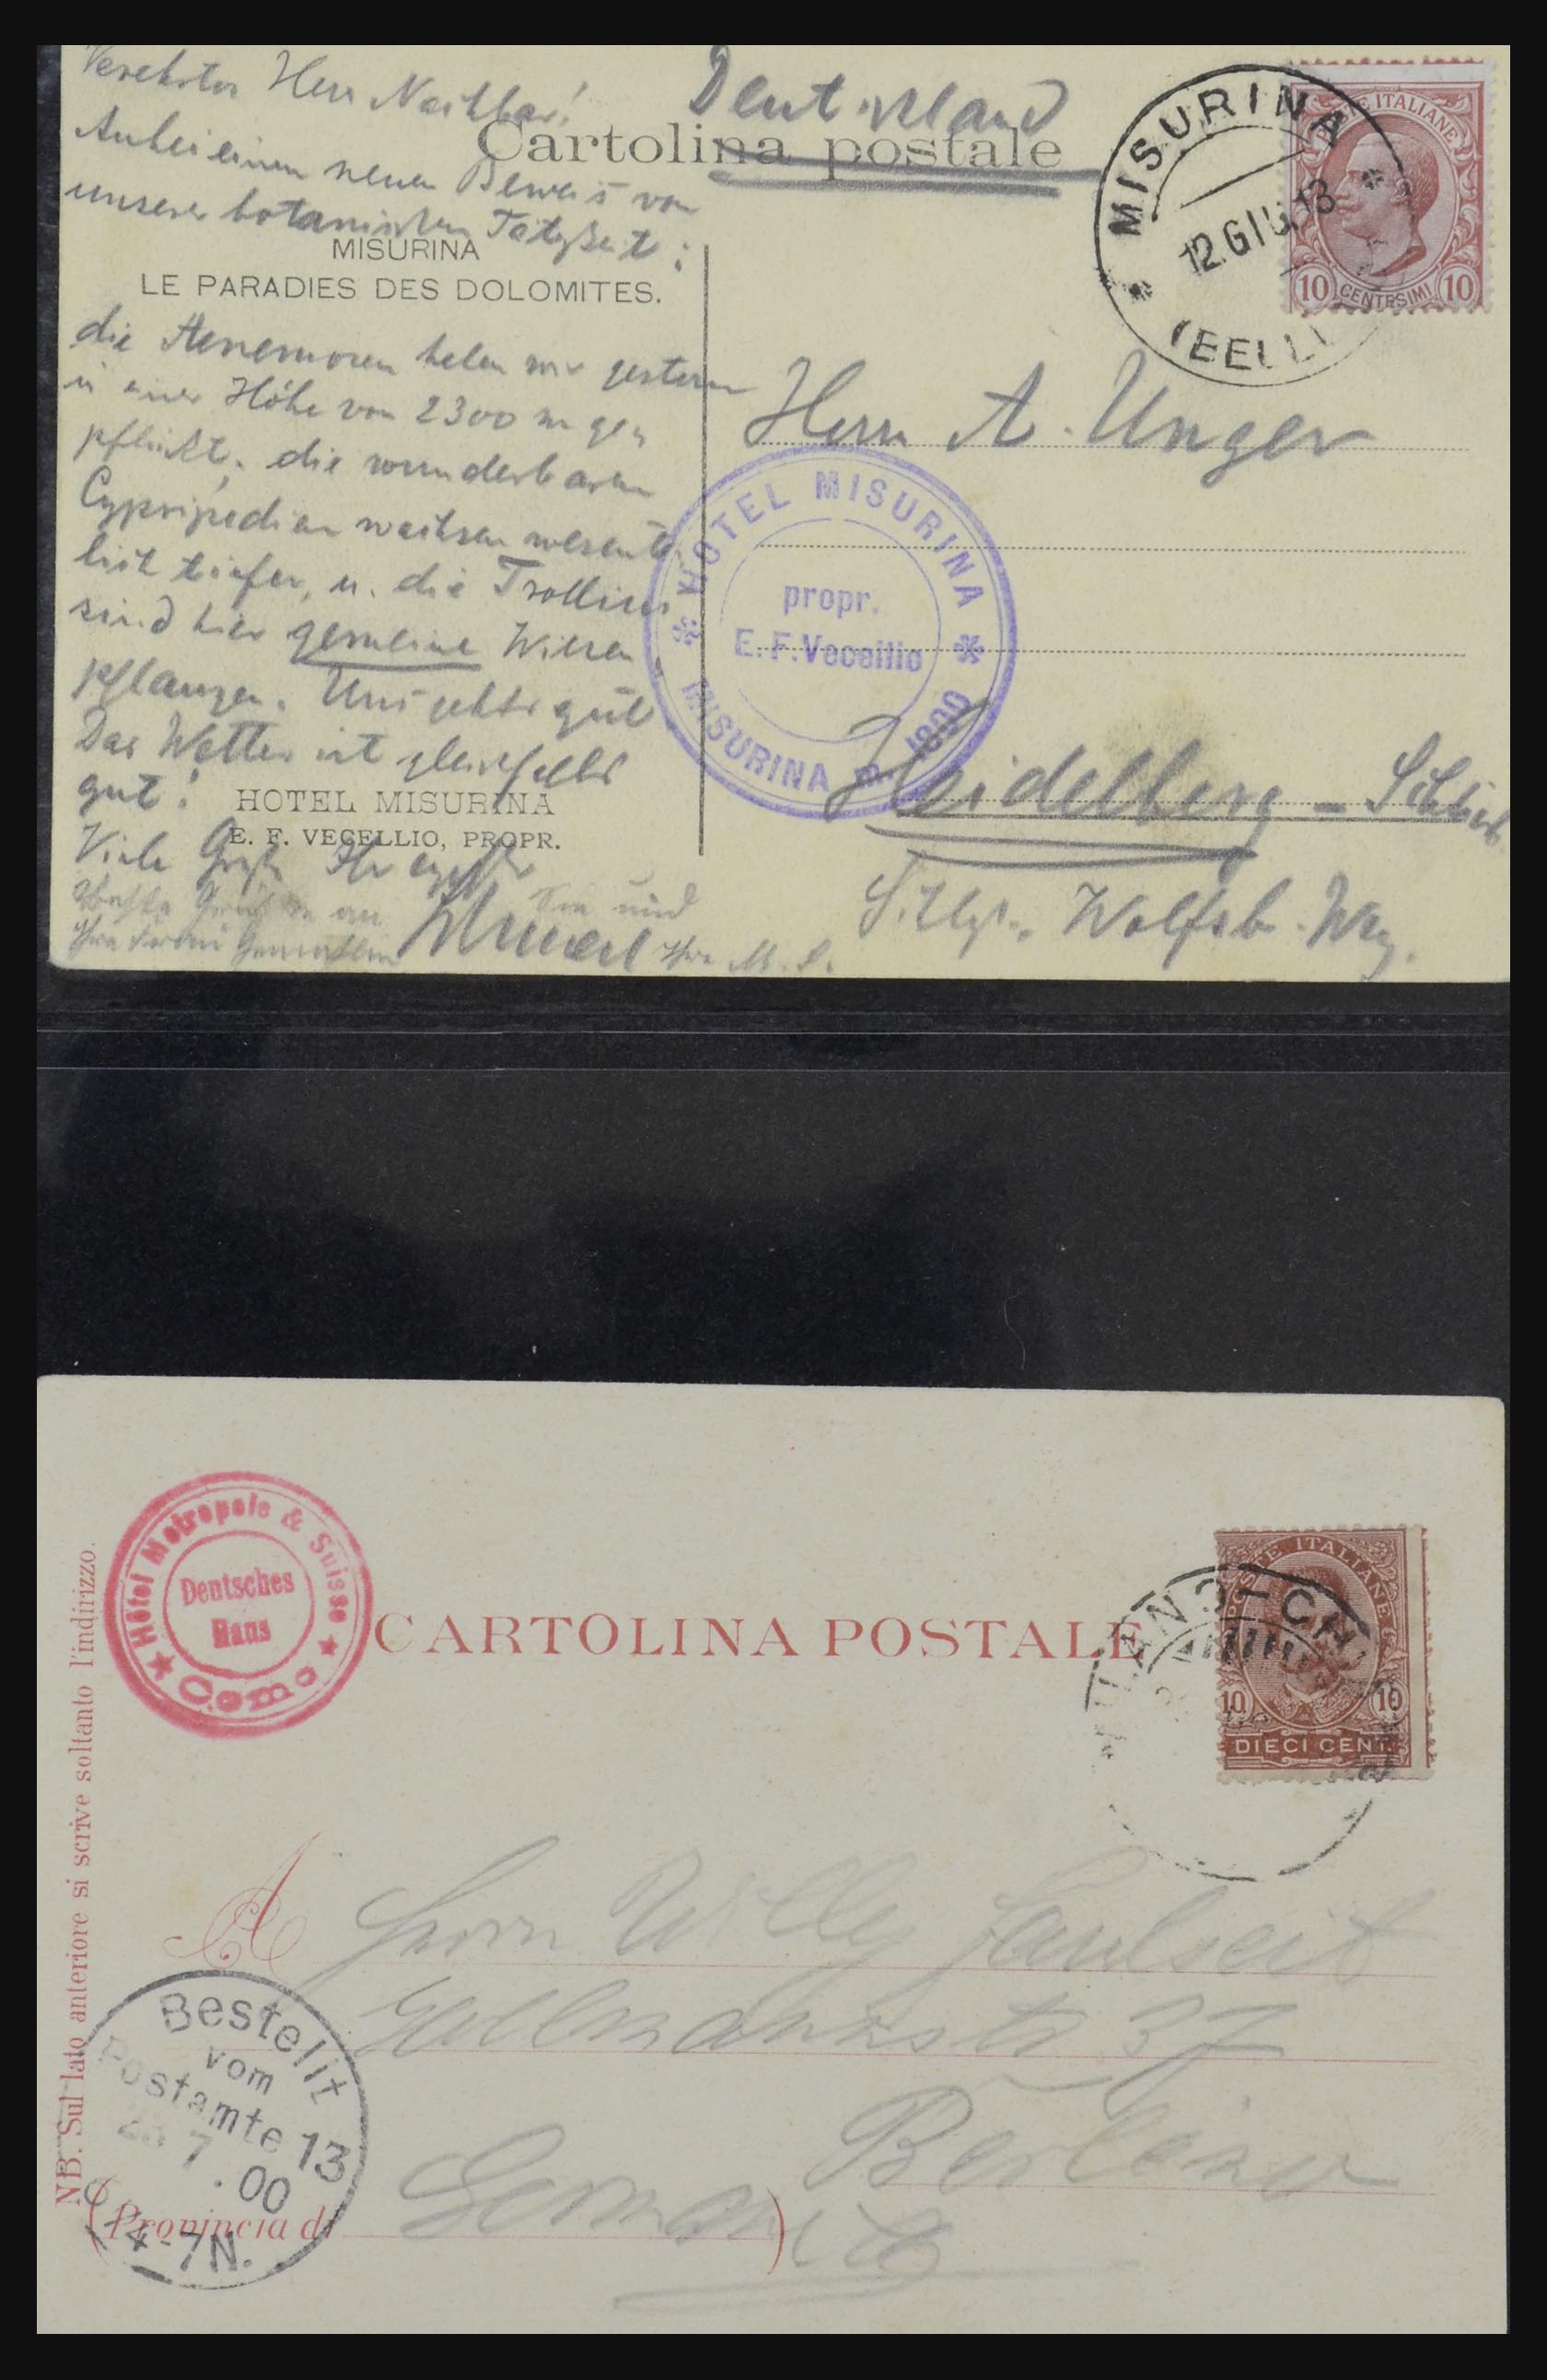 Verehrter Herr Nachbar!
Anbei einen neuen Beweis von
unserer botanischen Tätigkeit:
die Anemonen haben wir gestern
in einer Höhe von 2300 m ge-
pflückt, die wunderbaren
Cypripedien wachsen wesent-
lich tiefer, u. die Trollius
sind hier gemeine Wiesen
pflanzen. Uns geht's gut
Das Wetter ist gleichfalls
gut!
Viele Grüße Ihr
Sie und
Ihre M. S.
Deutschland
Cartolina postale
MISURINA
LE PARADIES DES DOLOMITES.
HOTEL MISURINA
E. F. VECELLIO, PROPR.
MISURINA
12.GIU.13
POSTE ITALIANE
10 CENTESIMI 10
Herrn A. Unger
HOTEL MISURINA
propr.
E. F. Vecellio
MISURINA m. 1800
Heidelberg - Schlierb.
Wolfsb. Weg.
Hôtel Metropole & Suisse
Deutsches
Haus
Como
CARTOLINA POSTALE
POSTE ITALIANE
10 10
DIECI CENT.
NB. Sul lato anteriore si scrive soltanto l'indirizzo.
A
Herrn Willy
37
Berlin
Bestellt
vom
Postamte 13
7.00
4-7N.
(Provincia di )
Germania